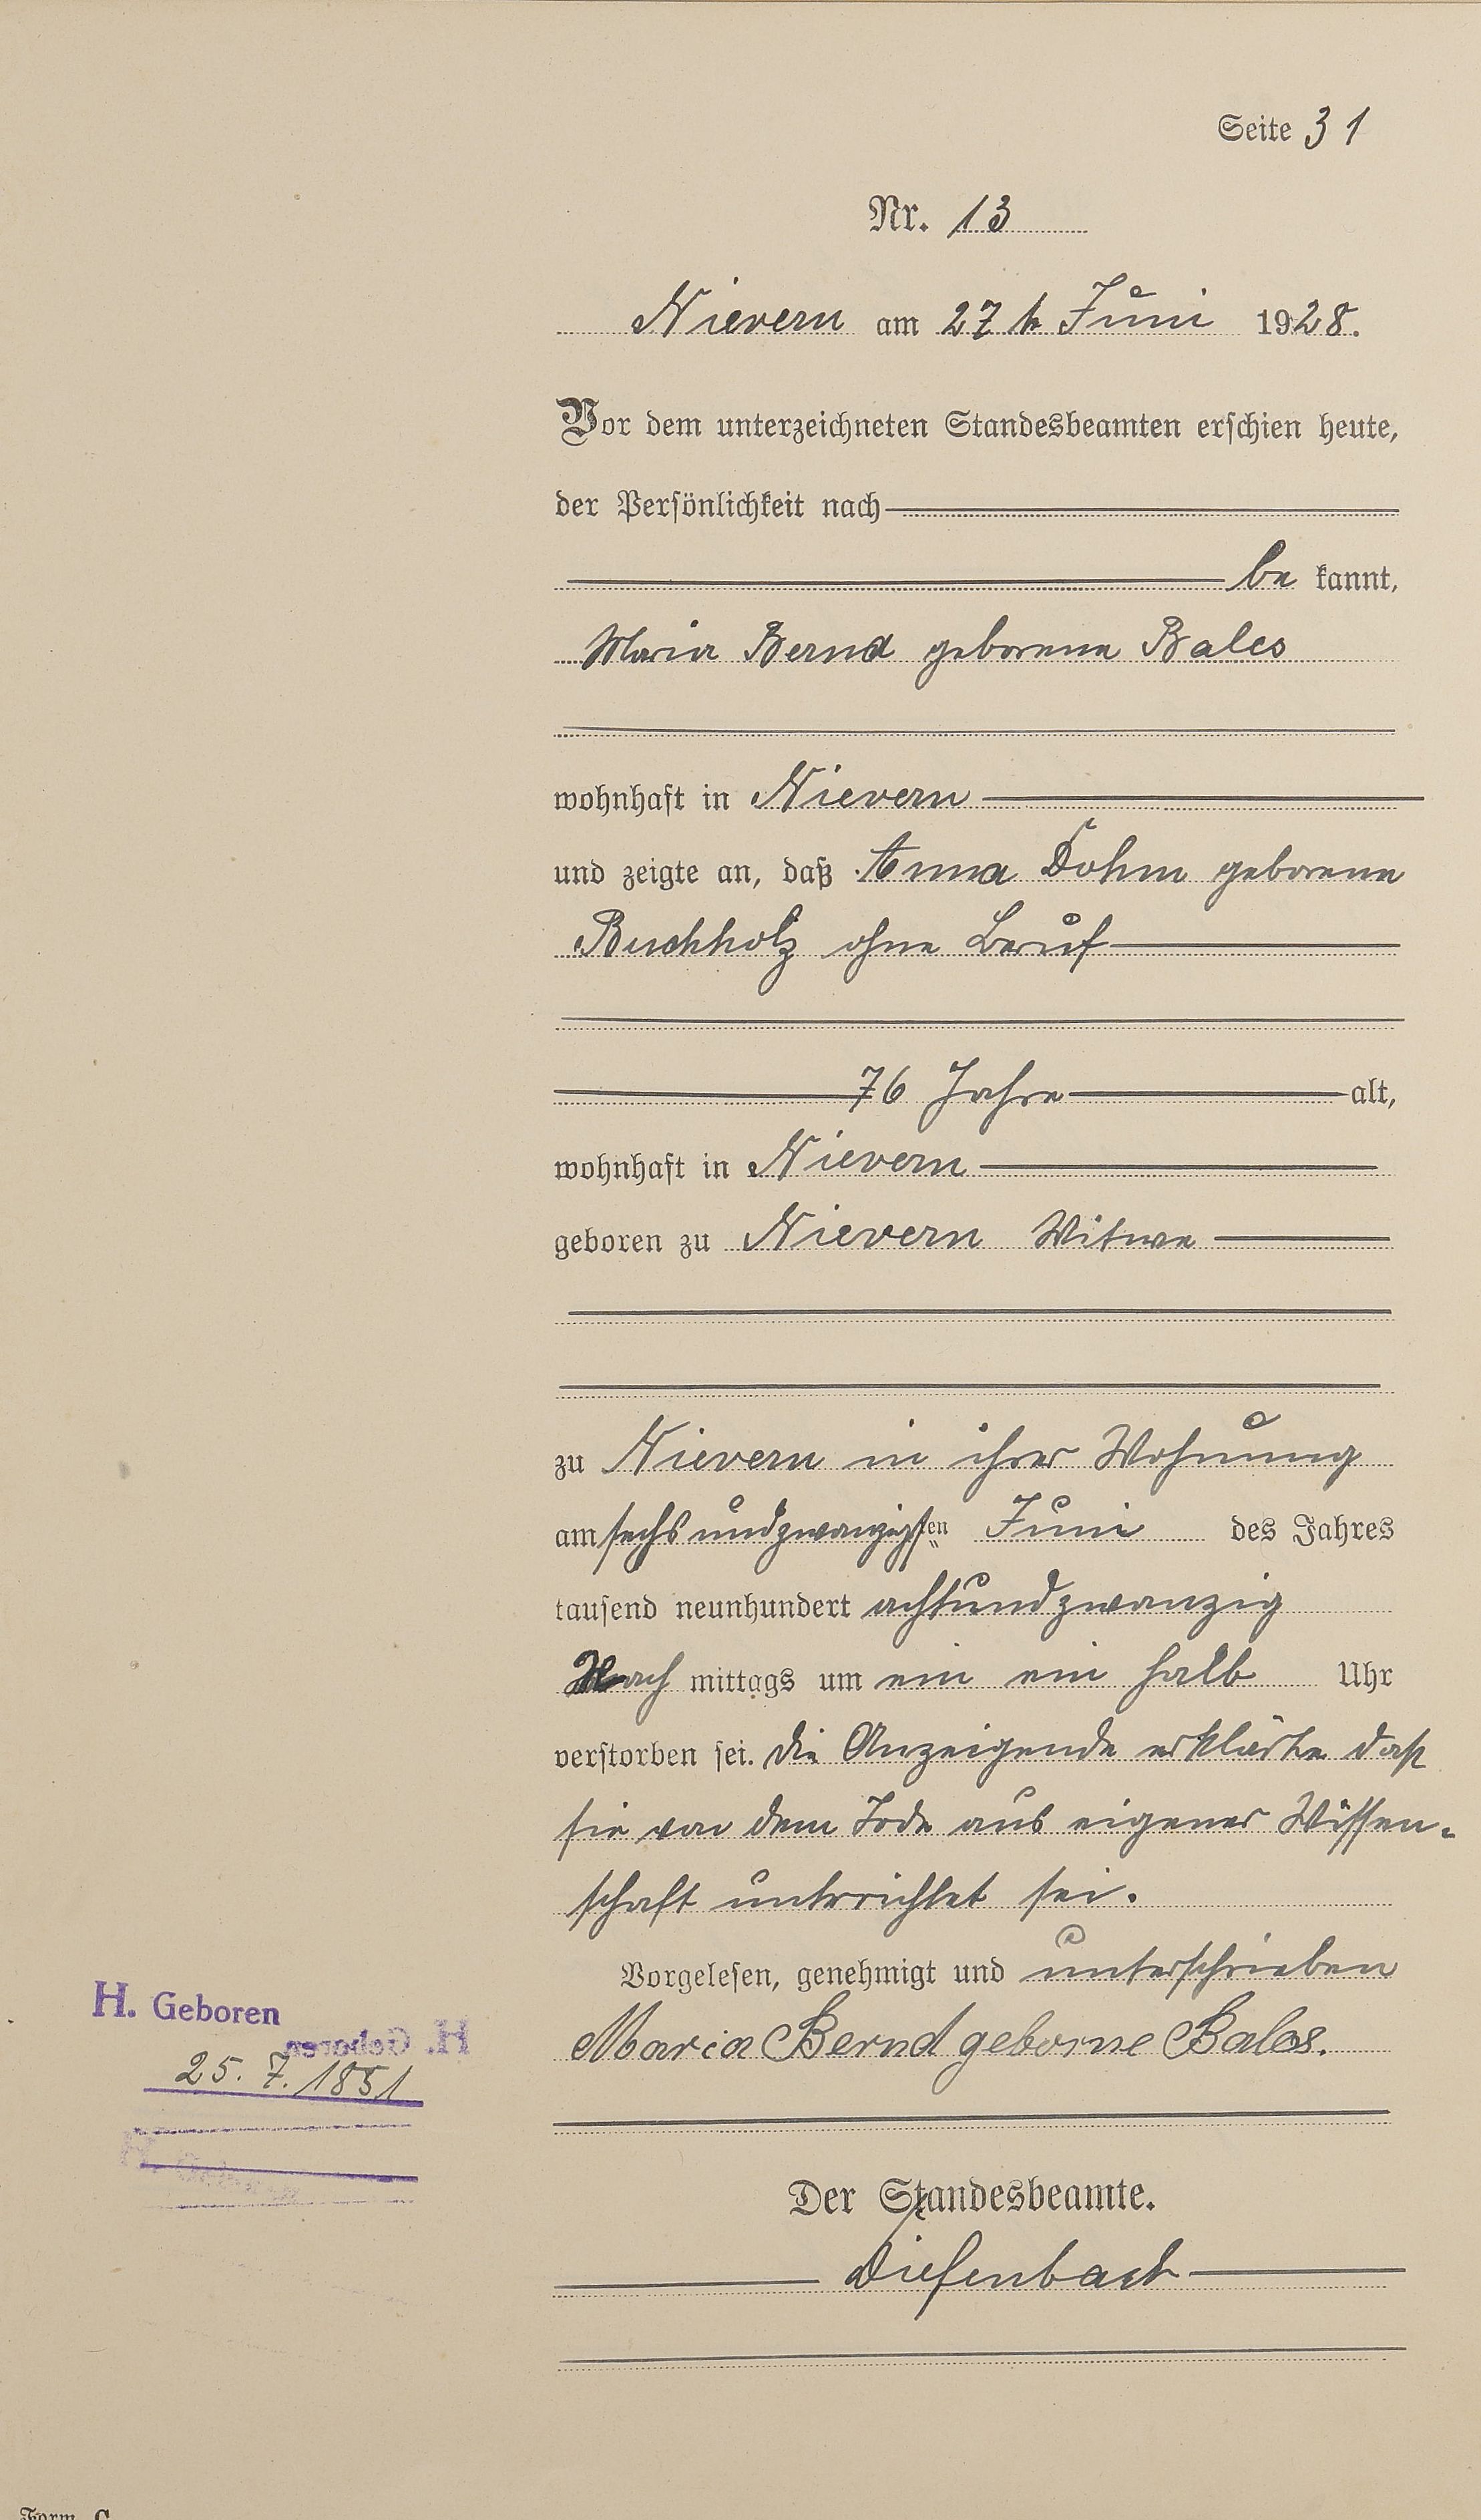 Seite 31
Nr. 13
Nievern am 27 h Juni 1928.
Vor dem unterzeichneten Standesbeamten erschien heute,
der Persönlichkeit nach
be kannt,
Maria Bernd geborene Bales
wohnhaft in Nievern
und zeigte an, daß Anna Dohm geborene
Buchholz ohne Beruf
76 Jahre alt,
wohnhaft in Nievern
geboren zu Nievern Witwe
zu Nievern in ihrer Wohnung
am sechs undzwanzigsten Juni des Jahres
tausend neunhundert achtundzwanzig
Nach mittags um ein ein halb Uhr
verstorben sei. die Anzeigende erklärte daß
sie von dem Tode aus eigener Wissen-
schaft unterrichtet sei.
Vorgelesen, genehmigt und unterschrieben
Maria Bernd geborne Bales.
H. Geboren
H. Geboren
25. 7. 1851
H. Geboren
Der Standesbeamte.
Diefenbach
Form. C